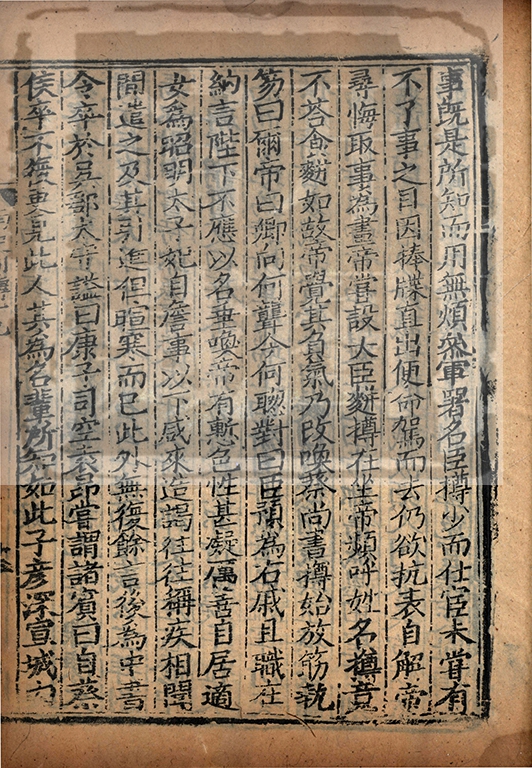 事既是所知而用無煩叅軍署名臣撙少而仕宦未甞有
不了事之目因捧牒直出便命駕而去仍欲抗表自解帝
尋悔取事為畫帝甞設大臣麫撙在坐帝頻呼姓名撙竟
不荅食麫如故帝覺其負氣乃改喚蔡尚書撙始放筯執
笏曰爾帝曰卿向何聾今何聦對曰臣預為右戚且職在
納言陛下不應以名垂喚帝有慙色性甚凝厲善自居適
女為昭明太子妃自詹事以下咸來造謁往往稱疾相聞
間遣之及其引進但暄寒而已此外無復餘言後為中書
令卒於吳郡太守謚曰康子司空袁昂甞謂諸賔曰自蔡
侯卒不復更見此人其為名輩所知如此子彦深宣城內